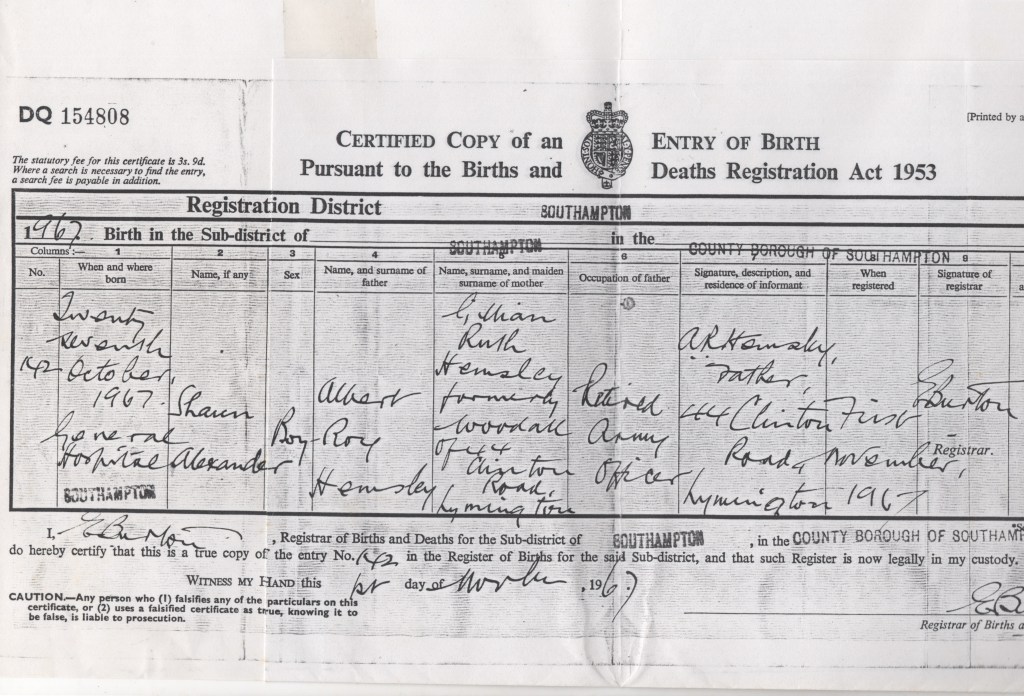 DQ 154808
[Printed by a
CERTIFIED COPY of an ENTRY OF BIRTH
Pursuant to the Births and Deaths Registration Act 1953
The statutory fee for this certificate is 3s. 9d.
Where a search is necessary to find the entry,
a search fee is payable in addition.
Registration District SOUTHAMPTON
1967. Birth in the Sub-district of SOUTHAMPTON in the COUNTY BOROUGH OF SOUTHAMPTON
Columns:— 1 2 3 4 5 6 7 8 9
No.
When and where
born
Name, if any
Sex
Name, and surname of
father
Name, surname, and maiden
surname of mother
Occupation of father
Signature, description, and
residence of informant
When
registered
Signature of
registrar
142
Twenty
seventh
October,
1967.
General
Hospital
SOUTHAMPTON
Shaun
Alexander
Boy
Albert
Roy
Hemsley
Gillian
Ruth
Hemsley
formerly
Woodall
of 44
Clinton
Road,
Lymington
Retired
Army
Officer
A R Hemsley,
Father,
44 Clinton
Road,
Lymington
First
November,
1967
E Burton
Registrar.
I, E Burton, Registrar of Births and Deaths for the Sub-district of SOUTHAMPTON, in the COUNTY BOROUGH OF SOUTHAMP
do hereby certify that this is a true copy of the entry No. 142 in the Register of Births for the said Sub-district, and that such Register is now legally in my custody.
WITNESS MY HAND this 1st day of November, 1967
CAUTION.—Any person who (1) falsifies any of the particulars on this
certificate, or (2) uses a falsified certificate as true, knowing it to
be false, is liable to prosecution.
E Bu
Registrar of Births a